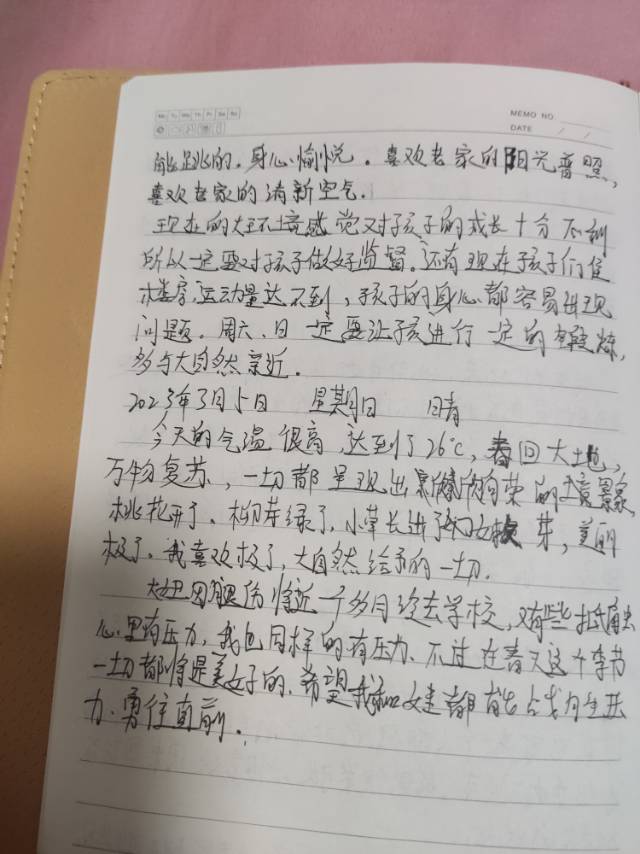 Mo Tu We Th Fr Sa Su
MEMO NO.
DATE / /
能跳的。身心愉悦。喜欢老家的阳光普照,
喜欢老家的清新空气.
现在的大环境感觉对孩子的成长十分不利
所以一定要对孩子做好监督。还有现在孩子们住
楼房,运动量达不到,孩子的身心都容易出现
问题。周六、日一定要让孩进行一定的锻炼,
多与大自然亲近。
2023年3月5日 星期日 晴
今天的气温很高,达到了26℃,春回大地,
万物复苏,一切都呈现出欣欣向荣的景象
桃花开了。柳芽绿了,小草长出了芽,美丽
极了。我喜欢极了,大自然给予的一切.
因腿伤将近一个多月没去学校,又有些抵触
心里有压力,我也同样的有压力.不过在春天这个季节
一切都将是美好的.希望我和女都能战胜压
力.勇往直前.